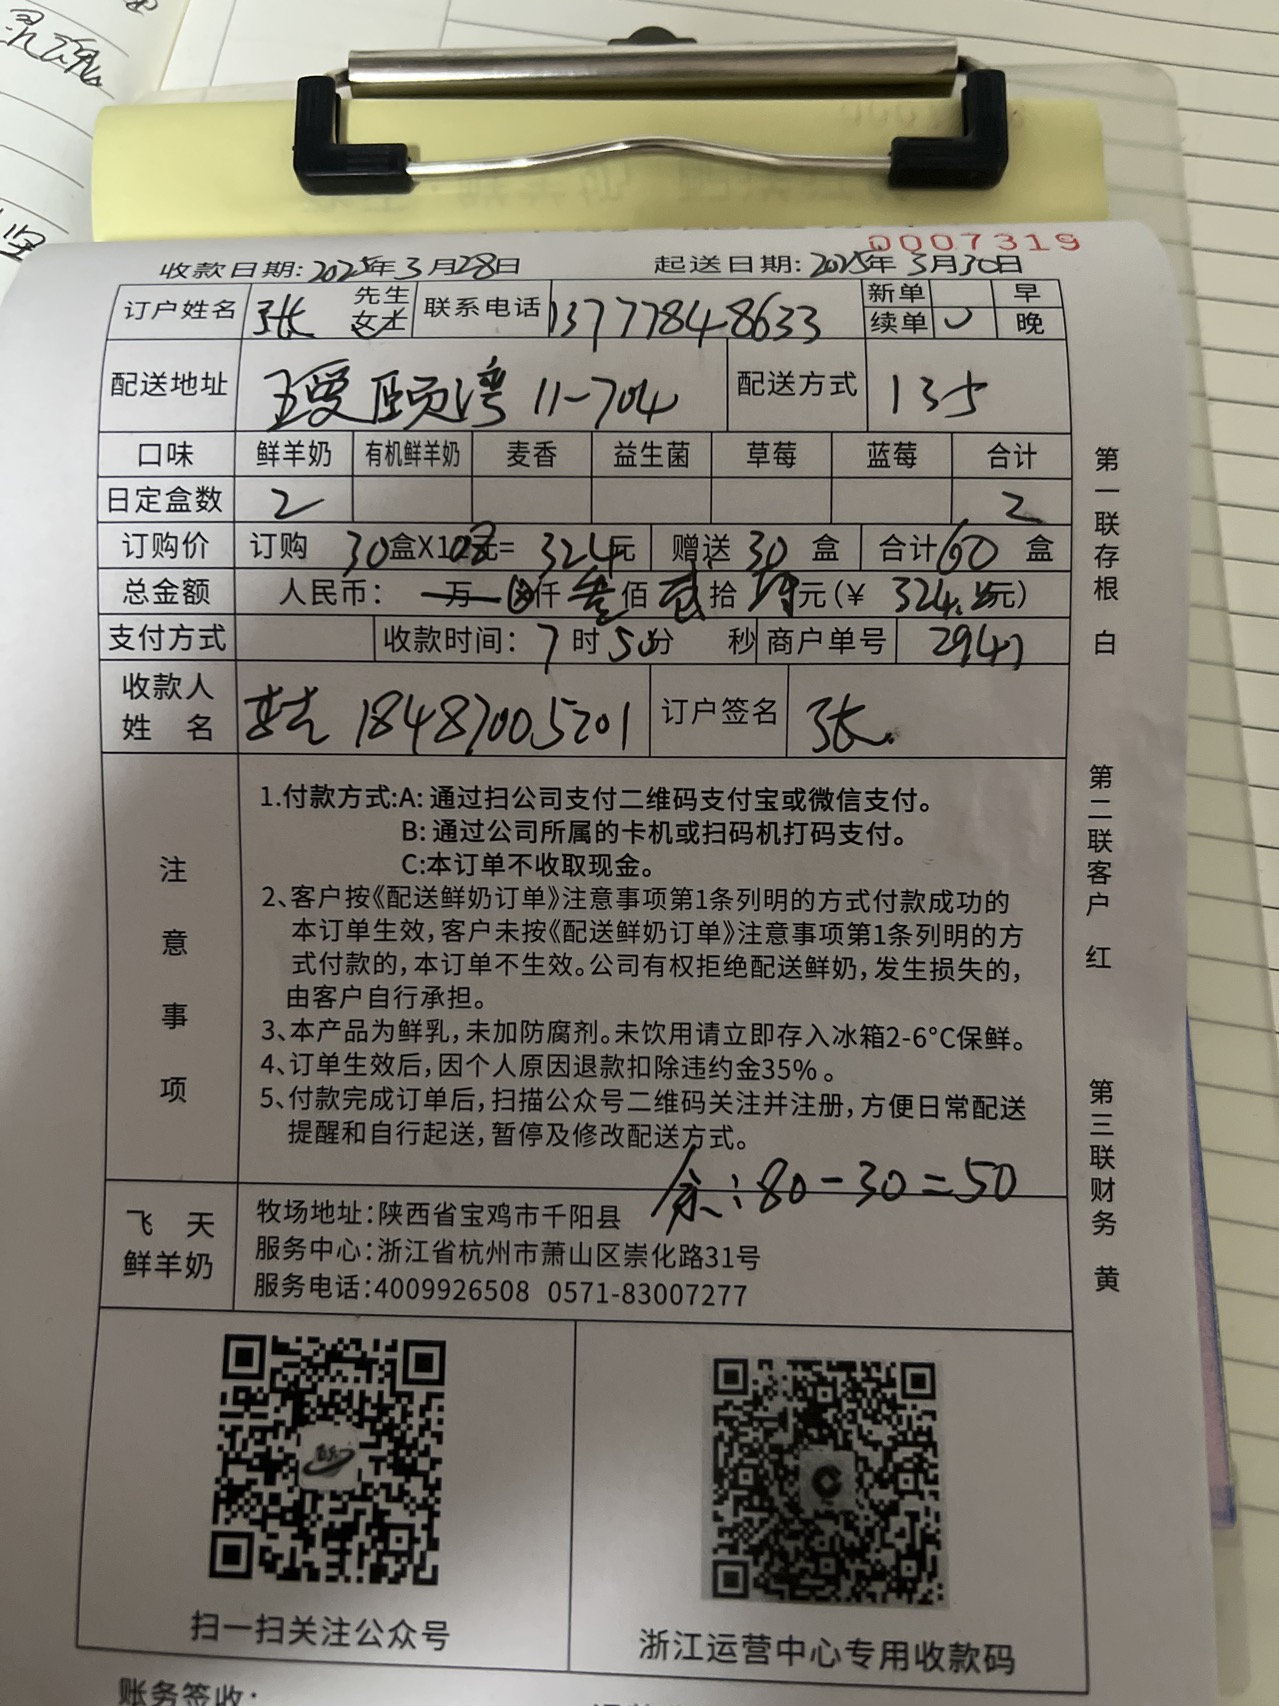 0007319
收款日期:2025年3月28日 起送日期:2025年3月30日
订户姓名 张 先生 女士 联系电话 13777848633 新单 早
续单 晚
配送地址 瑷颐湾 11-704 配送方式 135
口味 鲜羊奶 有机鲜羊奶 麦香 益生菌 草莓 蓝莓 合计
日定盒数 2 2
订购价 订购 30盒X10.8元= 324元 赠送 30 盒 合计60 盒
总金额 人民币: 万 仟 叁佰 贰拾 肆元(¥ 324.元)
支付方式 收款时间: 7时50分 秒 商户单号 2947
收款人
姓 名 18487005201 订户签名 张
注意事项
1.付款方式:A: 通过扫公司支付二维码支付宝或微信支付。
B: 通过公司所属的卡机或扫码机打码支付。
C:本订单不收取现金。
2、客户按《配送鲜奶订单》注意事项第1条列明的方式付款成功的
本订单生效,客户未按《配送鲜奶订单》注意事项第1条列明的方
式付款的,本订单不生效。公司有权拒绝配送鲜奶,发生损失的,
由客户自行承担。
3、本产品为鲜乳,未加防腐剂。未饮用请立即存入冰箱2-6°C保鲜。
4、订单生效后,因个人原因退款扣除违约金35%。
5、付款完成订单后,扫描公众号二维码关注并注册,方便日常配送
提醒和自行起送,暂停及修改配送方式。
余:80-30=50
飞 天
鲜羊奶
牧场地址:陕西省宝鸡市千阳县
服务中心:浙江省杭州市萧山区崇化路31号
服务电话:4009926508 0571-83007277
扫一扫关注公众号 浙江运营中心专用收款码
账务签收:
第一联存根 白
第二联客户 红
第三联财务 黄